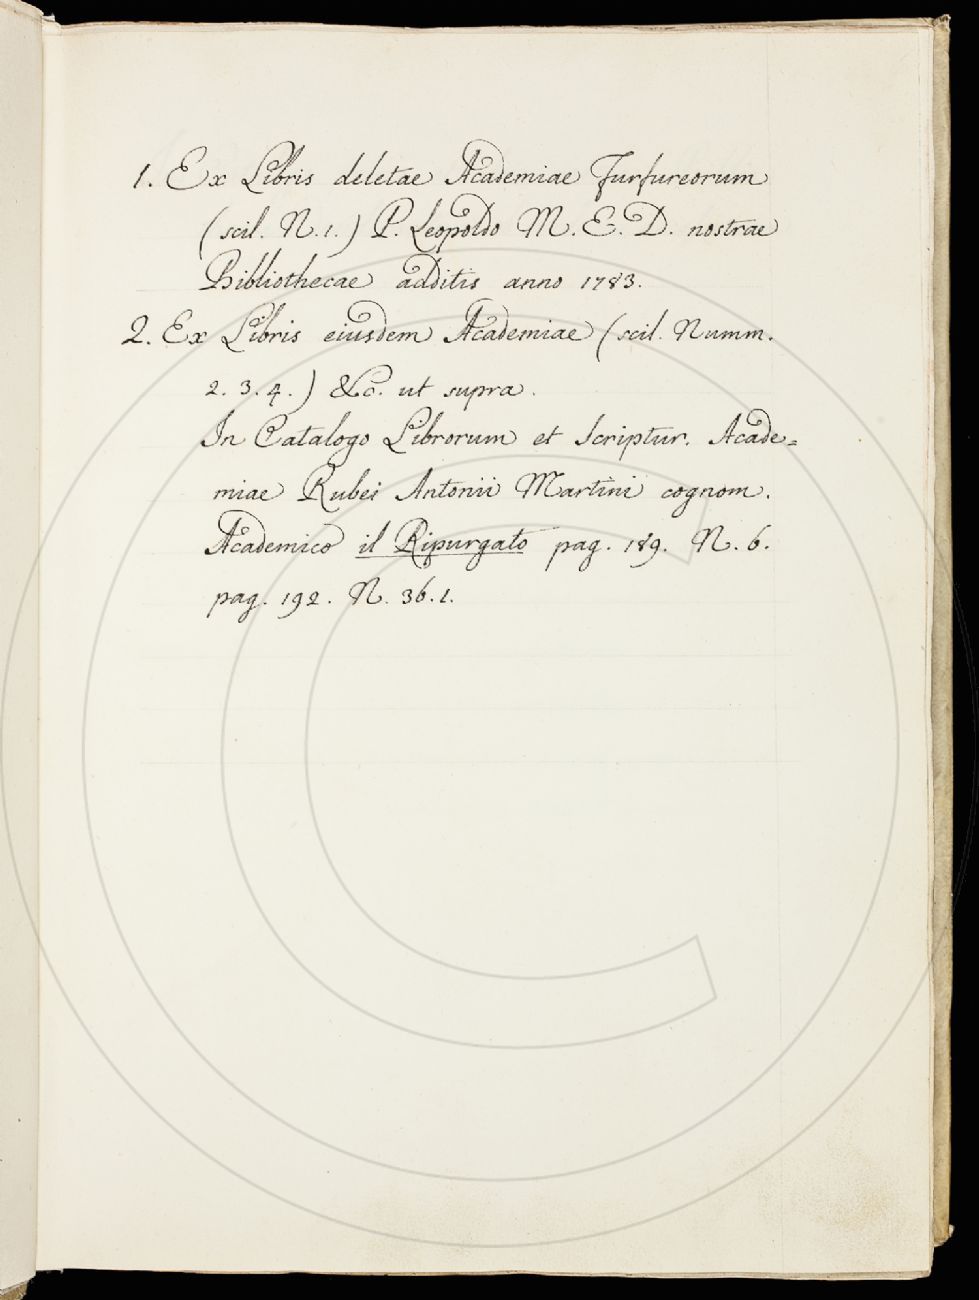 1. Ex Libris deletae Academiae Furfureorum
(scil. N. 1.) P. Leopoldo M. E. D. nostrae
Bibliothecae additis anno 1783.
2. Ex Libris eiusdem Academiae (scil. Numm.
2. 3. 4.) &c. ut supra.
In Catalogo Librorum et Scriptur. Acade=
miae Rubei Antonii Martini cognom.
Academico il Ripurgato pag. 189. N. 6.
pag. 192. N. 36. 1.